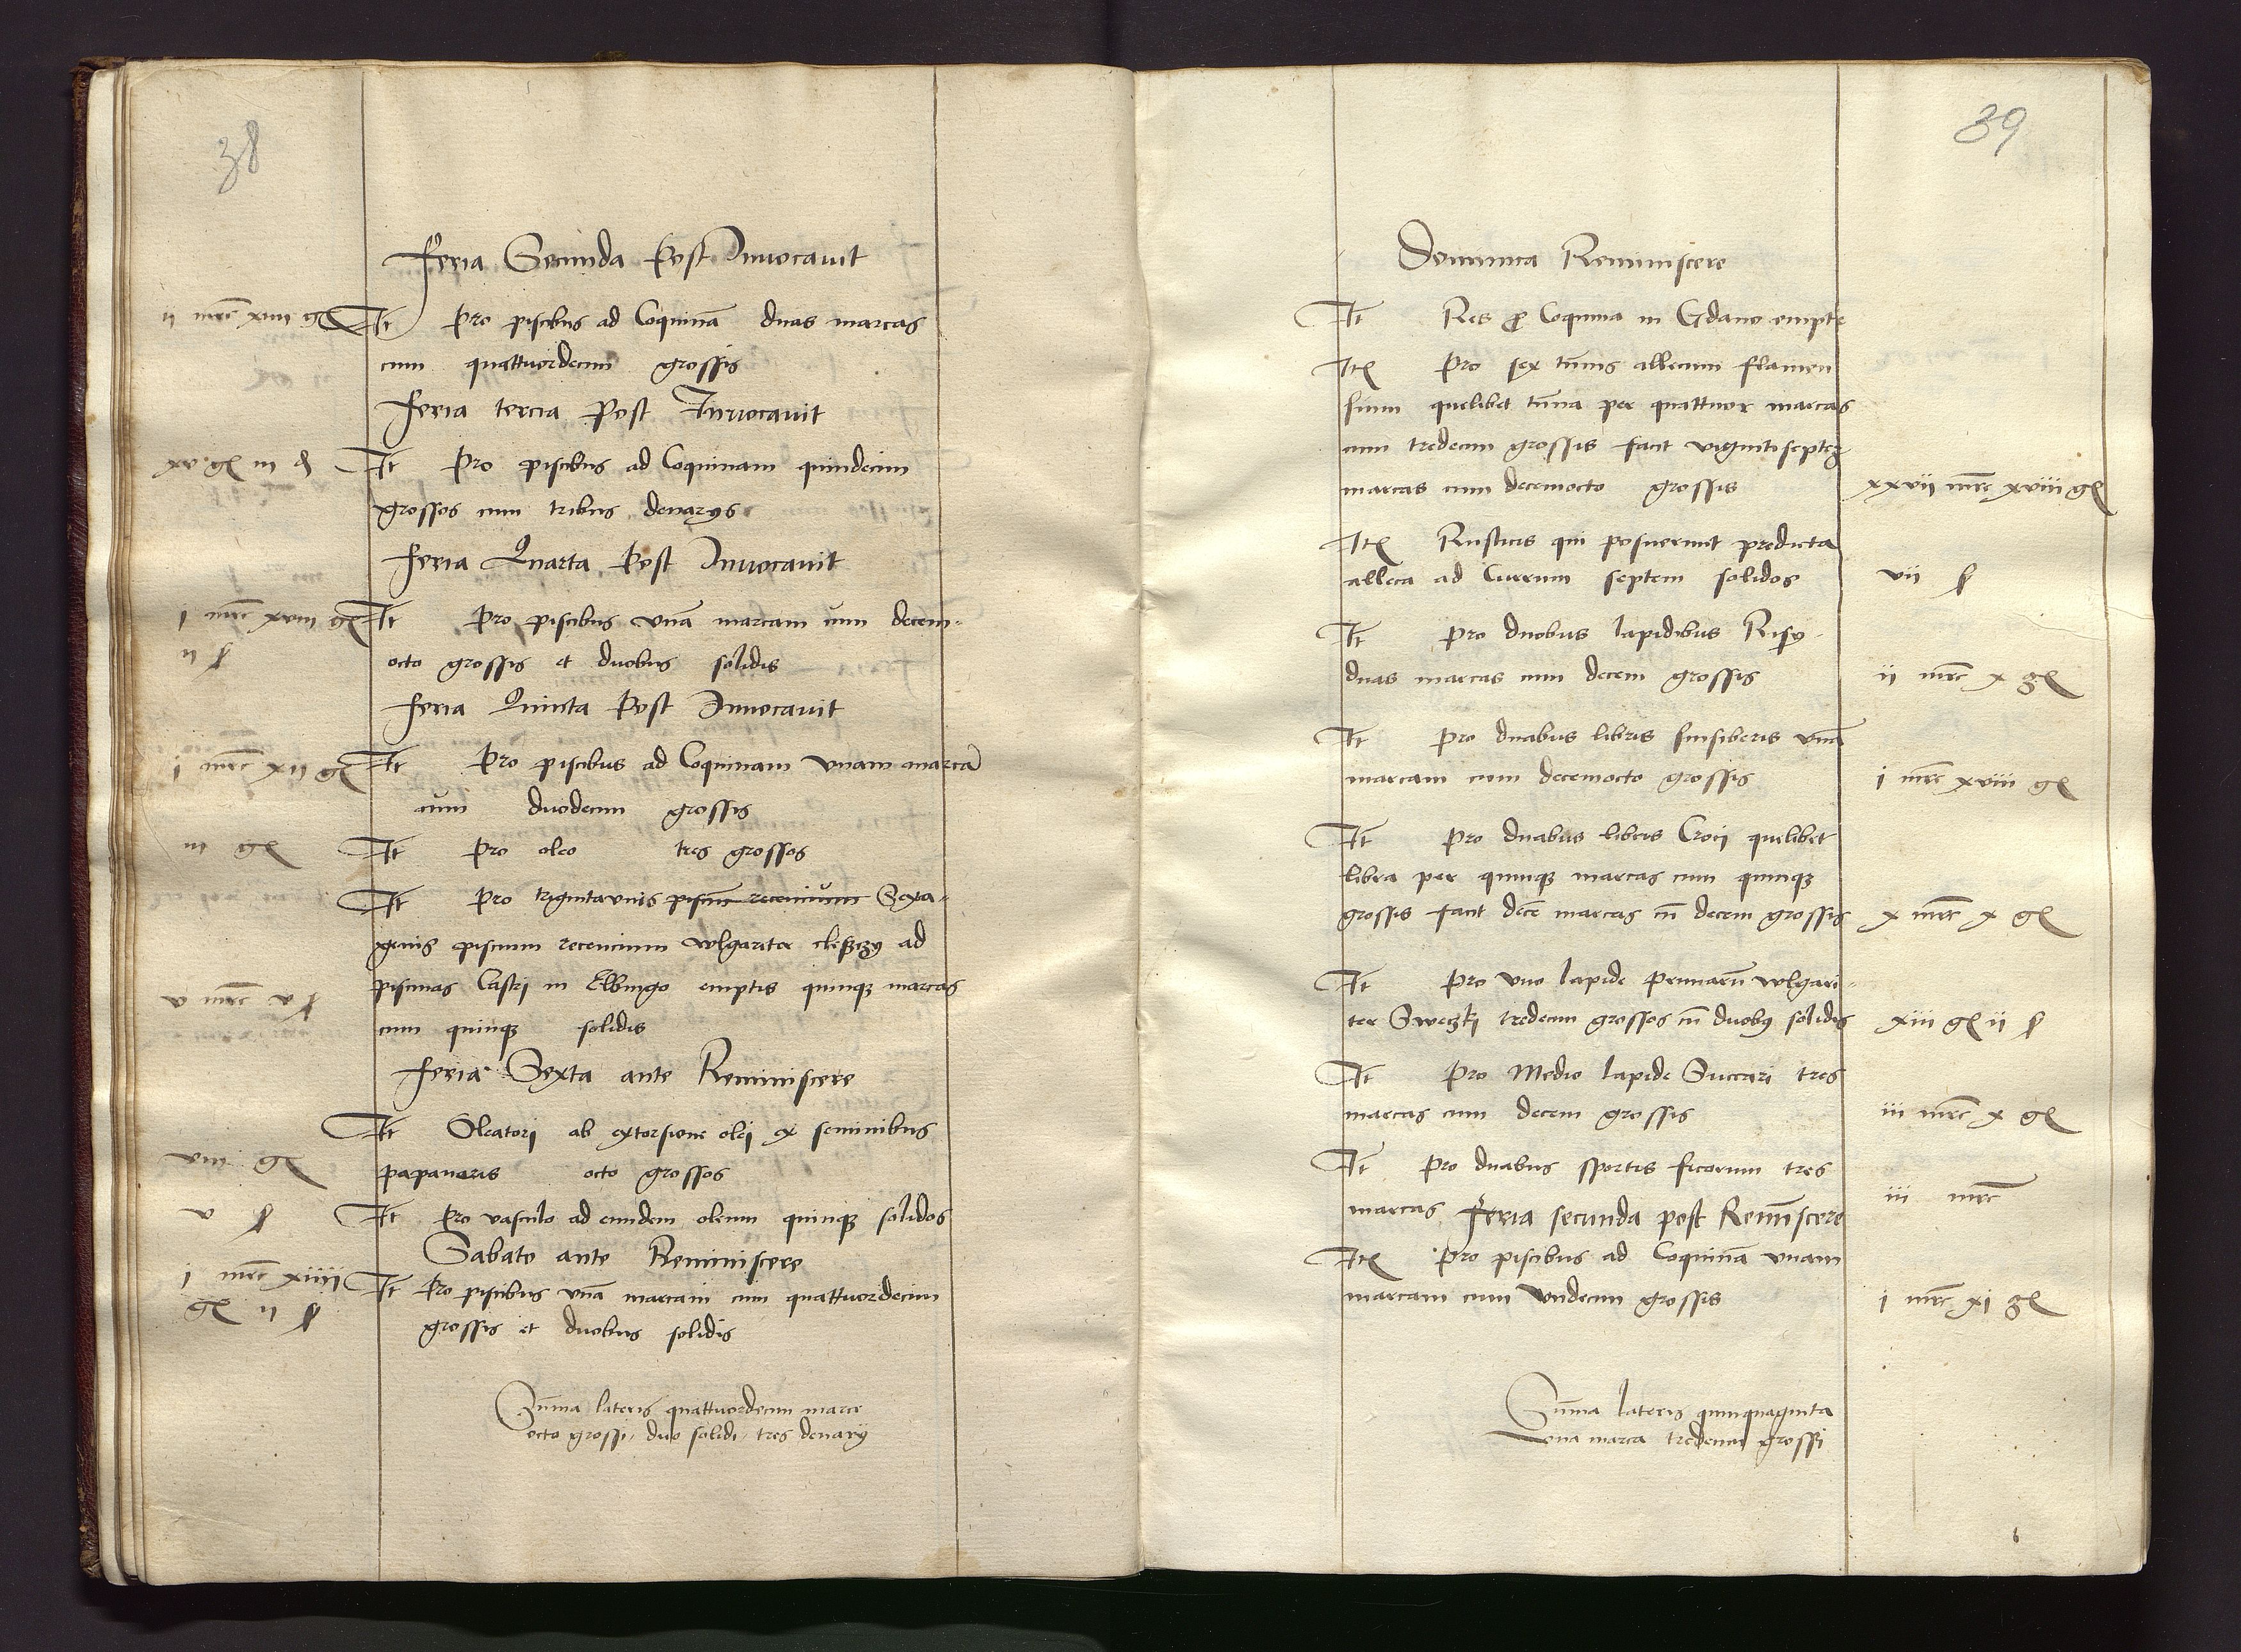 38
Feria Secunda Post Invocavit
ii mrc xiiii gl It Pro piscibus ad Coquinā duas marcas
cum quattuordecim grossis
Feria tercia Post Invocavit
xv gl iii d It Pro piscibus ad Coquinam quindecim
grossos cum tribus denarys
Feria Quarta Post Invocavit
i mrc xviii gl It Pro piscibus vnā marcam cum decem-
ii ß octo grossis et duobus solidis
Feria Quinta Post Invocavit
i mrc xii gl It Pro piscibus ad Coquinam vnam marcā
cum duodecim grossis
iii gl It Pro oleo tres grossos
It Pro trigintavnis pisciū recencium Sexa-
genis piscium recencium wlgariter cleszczy ad
v mrc v ß piscinas Castri in Elbingo emptis quinqz marcas
cum quinqz solidis
Feria Sexta ante Reminiscere
It Oleatori ab extorsione olei ex seminibus
viii gl papaveris octo grossos
v ß It Pro vasculo ad eundem oleum quinqz solidos
Sabato ante Reminiscere
i mrc xiiii It Pro piscibus vnā marcam cum quattuordecim
gl ii ß grossis et duobus solidis
Sūma lateris quattuordecim marce
octo grossi, duo solidi, tres denary
39
Dominica Reminiscere
It Res ꝓ Coquina in Gdano empte
Itē Pro sex tūnis allecum flamen
sium quelibet tūna per quattuor marcas
cum tredecim grossis facit vigintiseptez
marcas cum decemocto grossis xxvii mrc xviii gl
Itē Rusticis qui posuerunt predicta
alleca ad Currum septem solidos vii ß
It Pro duobus lapidibus Risy
duas marcas cum decem grossis ii mrc x gl
It Pro duabus libris sinsiberis vnā
marcam cum decemocto grossis i mrc xviii gl
It Pro duabus libris Croci quelibet
libra per quinqz marcas cum quinqz
grossis facit decē marcas cū decem grossis x mrc x gl
It Pro vno lapide prunarū wlgari-
ter Sweczki tredecim grossos cū duobꝰ solidis xiii gl ii ß
It Pro Medio lapide Succari tres
marcas cum decem grossis iii mrc x gl
It Pro duabus sportis ficorum tres
marcas iii mrc
Feria secunda post Reminiscere
Itē Pro piscibus ad Coquinā vnam
marcam cum vndecim grossis i mrc xi gl
Sūma lateris quinquaginta
vna marca tredecim grossi